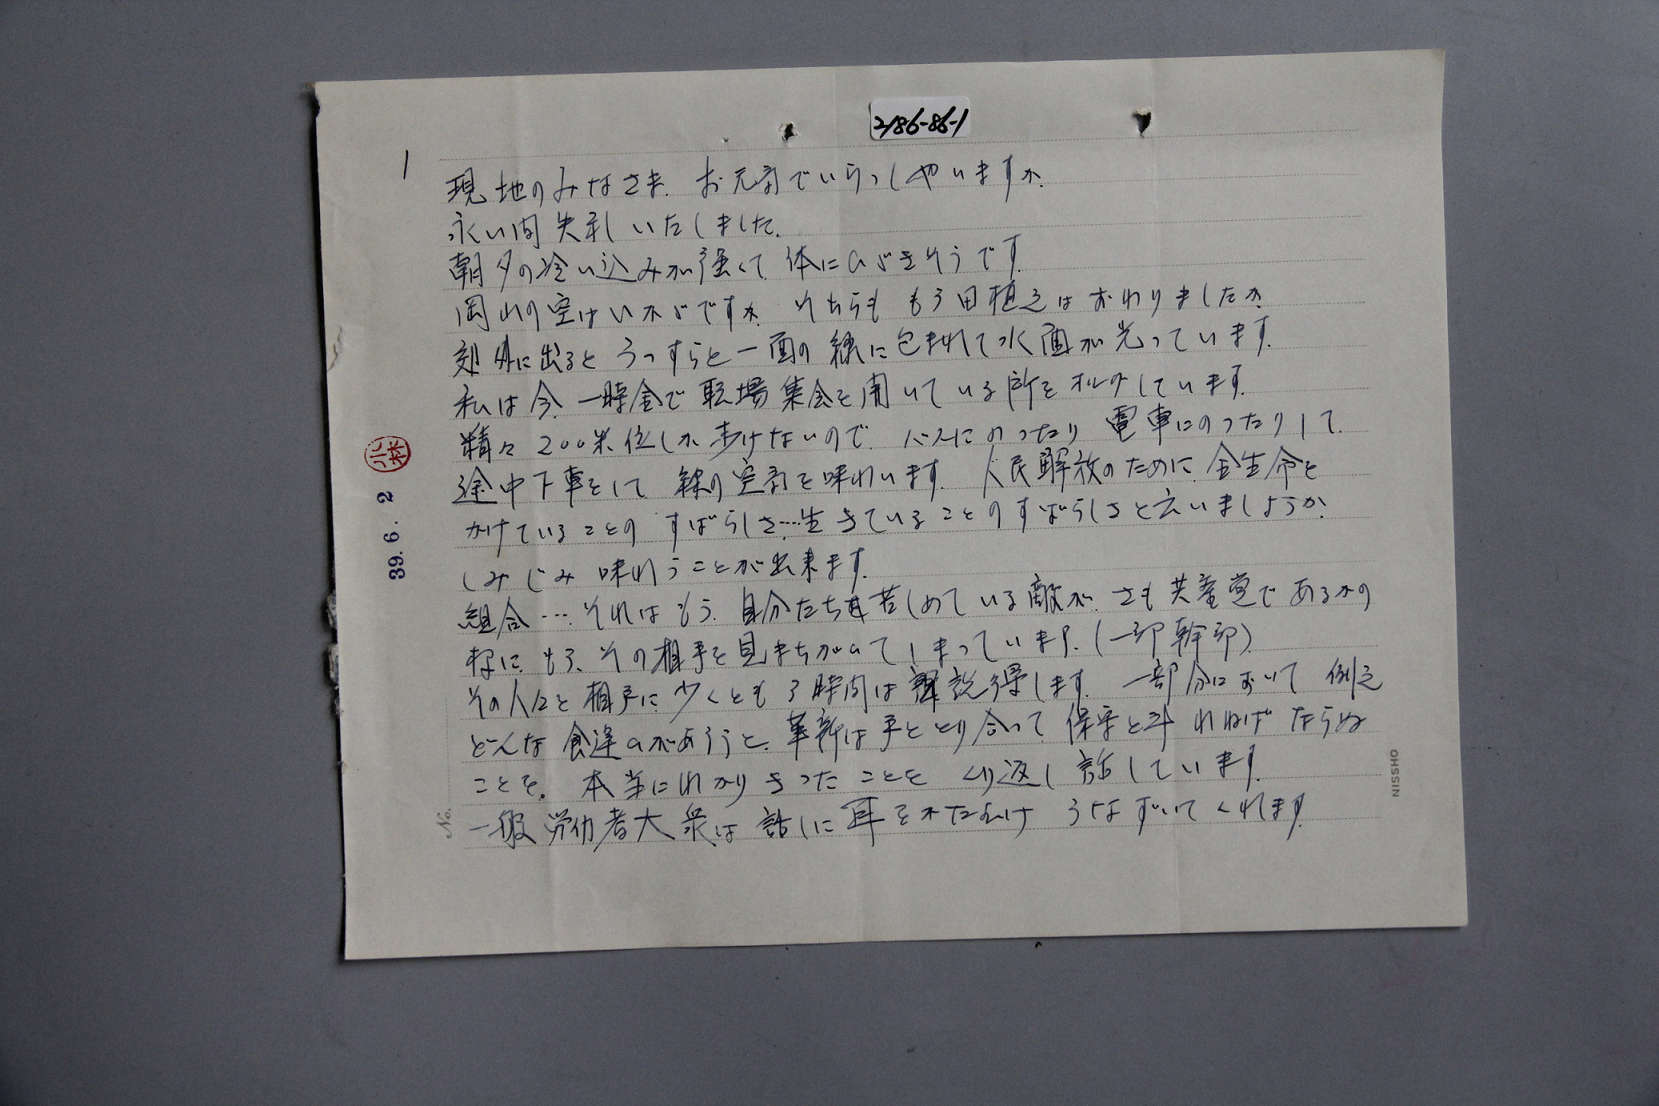 2186-86-1
1
現地のみなさま、お元気でいらっしやいますか。
永い間失礼いたしました。
朝夕の冷い込みが強くて体にひびきそうです。
岡山の空はいかがですか。そちらももう田植えはおわりましたか。
郊外に出るとうっすらと一面の緑に包まれて水面が光っています。
私は今、一時金で職場集会を開いている所をオルグしています。
精々200米位しか歩けないので、バスにのったり電車にのったりして、
途中下車をして緑の空気を味わいます。人民解放のために全生命を
かけていることのすばらしさ…生きていることのすばらしさと云いましようか、
しみじみ味わうことが出来ます。
組合…それはもう、自分たちを苦しめている敵が、さも共産党であるかの
様に、もう、その相手を見まちがいてしまっています。(一部幹部)
その人々と相手に少くとも3時間は説得します。一部分において例え
どんな食違いがあろうと、革新は手をとり合って保守と斗わねばならぬ
ことを、本当にわかりきったことをくり返し話しています。
一般労仂者大衆は話しに耳をかたむけうなずいてくれます。
小林
39.6.2
No.
NISSHO